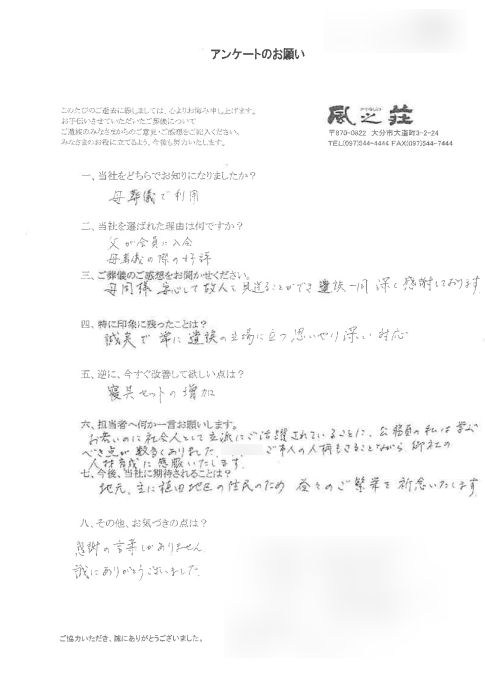 アンケートのお願い
このたびのご逝去に際しましては、心よりお悔み申し上げます。
お手伝いさせていただいたご葬儀について
ご遺族のみなさまからのご意見・ご感想をご記入ください。
みなさまのお役に立てるよう、今後も努力いたします。
風之荘
〒870-0822 大分市大道町3-2-24
TEL(097)544-4444 FAX(097)544-7444
一、当社をどちらでお知りになりましたか？
母葬儀で利用
二、当社を選ばれた理由は何ですか？
父が会員に入会
母葬儀の際の好評
三、ご葬儀のご感想をお聞かせください。
母同様 安心して故人を見送ることができ 遺族一同 深く感謝しております
四、特に印象に残ったことは？
誠実で常に遺族の立場に立つ思いやり深い対応
五、逆に、今すぐ改善して欲しい点は？
寝具セットの増加
六、担当者へ何か一言お願いします。
お若いのに社会人として立派にご活躍されていることに、公務員の私は学ぶ
べき点が数多くありました。 ご本人の人柄もさることながら 御社の
人材育成に感服いたします。
七、今後、当社に期待されることは？
地元、主に稙田地区の住民のため 益々のご繁栄を祈念いたします
八、その他、お気づきの点は？
感謝の言葉しかありません
誠にありがとうございました。
ご協力いただき、誠にありがとうございました。